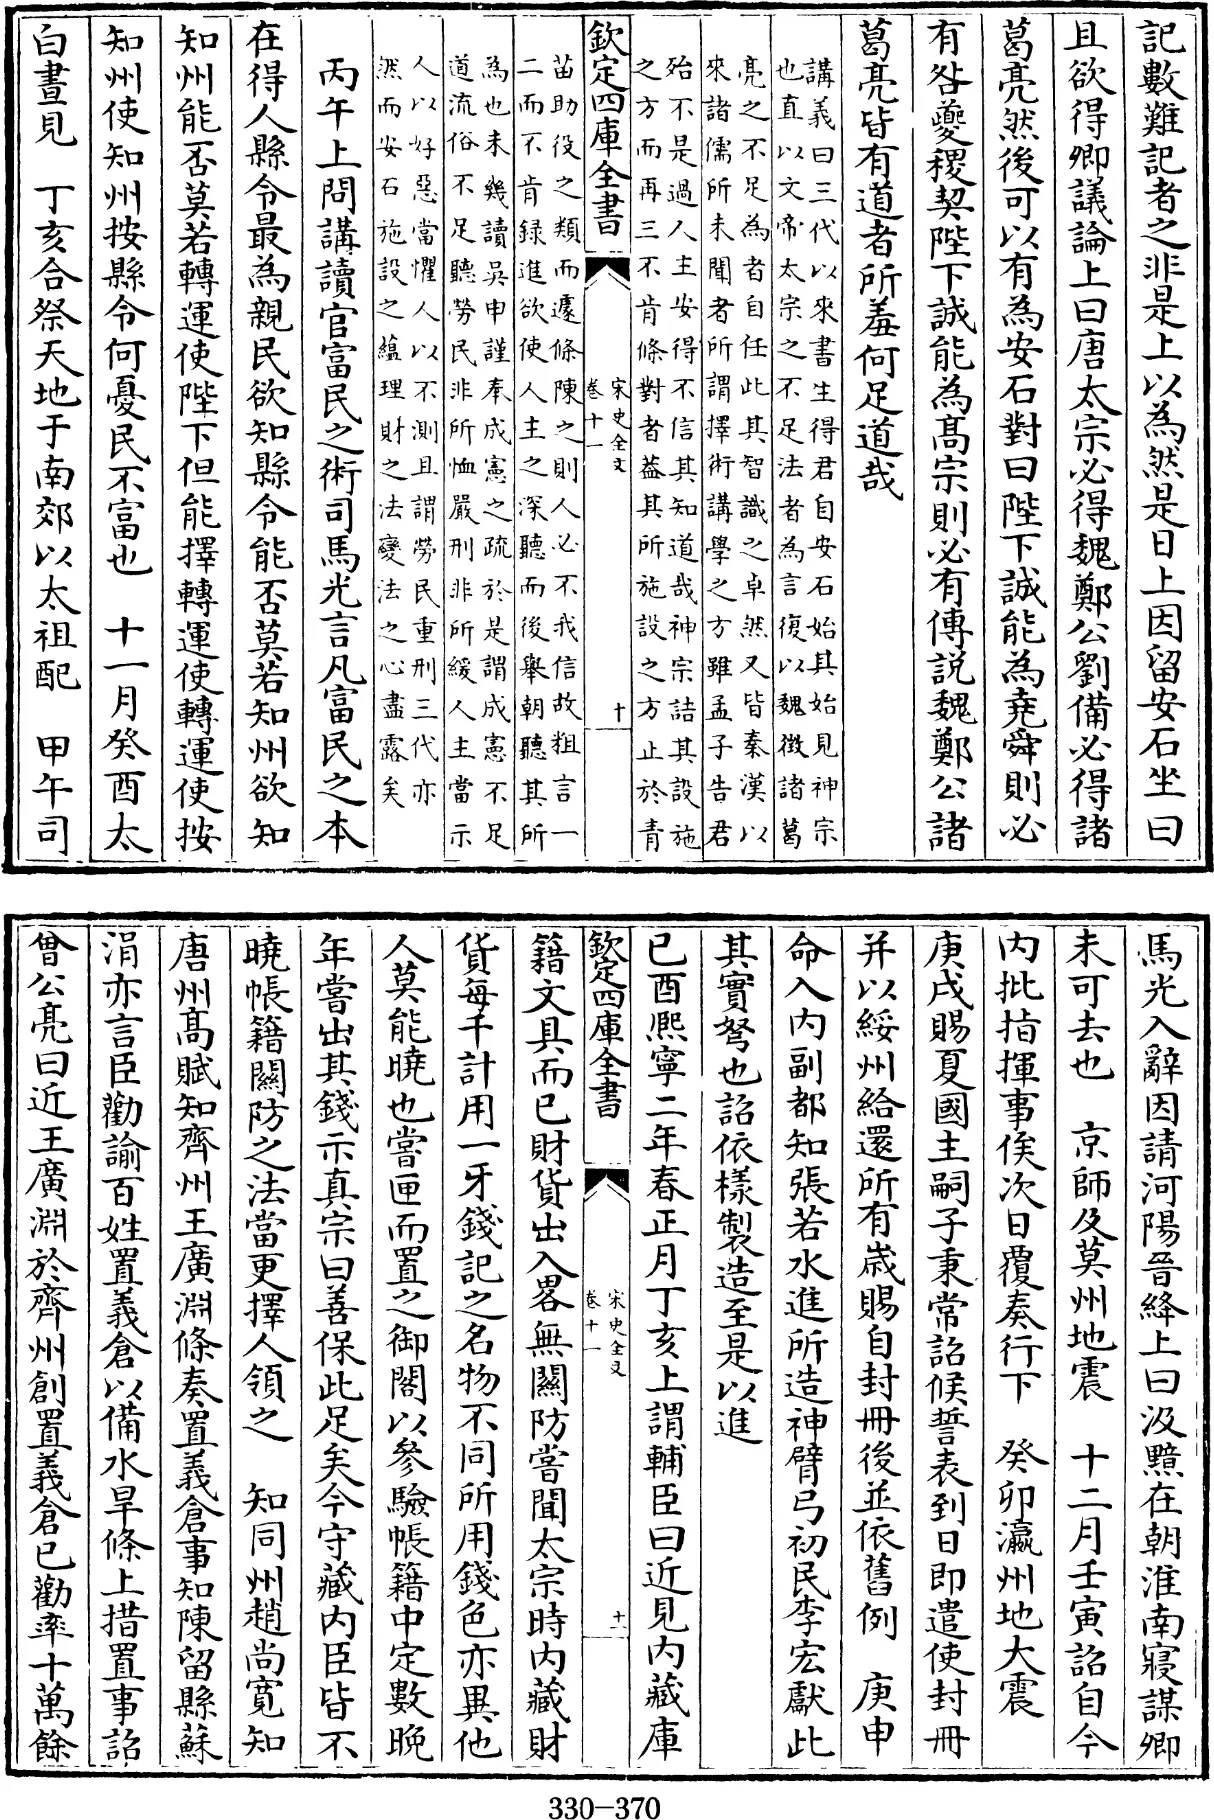 記數難記者之非是上以為然是日上因留安石坐曰
且欲得卿議論上曰唐太宗必得魏鄭公劉備必得諸
葛亮然後可以有為安石對曰陛下誠能為堯舜則必
有咎夔稷契陛下誠能為髙宗則必有傅説魏鄭公諸
葛亮皆有道者所羞何足道哉
講義曰三代以來書生得君自安石始其始見神宗
也直以文帝太宗之不足法者為言復以魏徴諸葛
亮之不足為者自任此其智識之卓然又皆秦漢以
來諸儒所未聞者所謂擇術講學之方雖孟子告君
殆不是過人主安得不信其知道哉神宗詰其設施
之方而再三不肯條對者葢其所施設之方止於青
欽定四庫全書
宋史全文
卷十一
十
苗助役之類而遽條陳之則人必不我信故粗言一
二而不肯録進欲使人主之深聽而後舉朝聽其所
為也未幾讀吳申謹奉成憲之疏於是謂成憲不足
道流俗不足聽勞民非所恤嚴刑非所緩人主當示
人以好惡當懼人以不測且謂勞民重刑三代亦
然而安石施設之緼理財之法變法之心盡露矣
丙午上問講讀官富民之術司馬光言凡富民之本
在得人縣令最為親民欲知縣令能否莫若知州欲知
知州能否莫若轉運使陛下但能擇轉運使轉運使按
知州使知州按縣令何憂民不富也 十一月癸酉太
白晝見 丁亥合祭天地于南郊以太祖配 甲午司
馬光入辭因請河陽晉絳上曰汲黯在朝淮南寢謀卿
未可去也 京師及莫州地震 十二月壬寅詔自今
内批指揮事俟次日覆奏行下 癸卯瀛州地大震
庚戌賜夏國主嗣子秉常詔候誓表到日即遣使封冊
并以綏州給還所有嵗賜自封冊後並依舊例 庚申
命入内副都知張若水進所造神臂弓初民李宏獻此
其實弩也詔依様製造至是以進
已酉熈寧二年春正月丁亥上謂輔臣曰近見内藏庫
欽定四庫全書
宋史全文
卷十一
十一
籍文具而已財貨出入畧無關防嘗聞太宗時内藏財
貨每千計用一牙錢記之名物不同所用錢色亦異他
人莫能曉也嘗匣而置之御閣以參驗帳籍中定數晚
年嘗出其錢示真宗曰善保此足矣今守藏内臣皆不
曉帳籍關防之法當更擇人領之 知同州趙尚寛知
唐州髙賦知齊州王廣淵條奏置義倉事知陳留縣蘇
涓亦言臣勸諭百姓置義倉以備水旱條上措置事詔
曾公亮曰近王廣淵於齊州創置義倉已勸率十萬餘
330-370